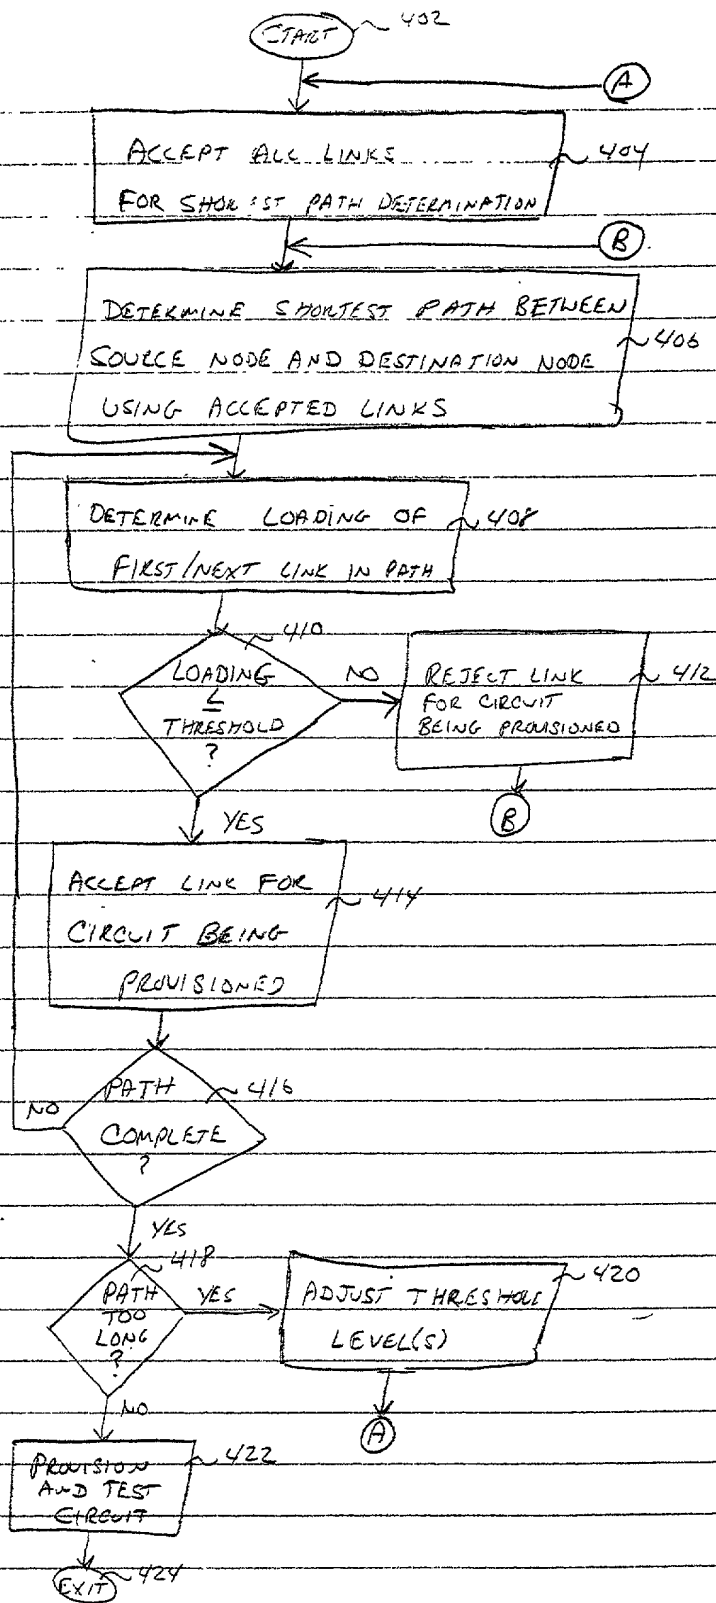 START 402
A
ACCEPT ALL LINKS
FOR SHORTEST PATH DETERMINATION
404
B
DETERMINE SHORTEST PATH BETWEEN
SOURCE NODE AND DESTINATION NODE
USING ACCEPTED LINKS
406
DETERMINE LOADING OF
FIRST/NEXT LINK IN PATH
408
410
LOADING
≤
THRESHOLD
?
NO
REJECT LINK
FOR CIRCUIT
BEING PROVISIONED
412
B
YES
ACCEPT LINK FOR
CIRCUIT BEING
PROVISIONED
414
PATH
COMPLETE
?
416
NO
YES
418
PATH
TOO
LONG
?
YES
ADJUST THRESHOLD
LEVEL(S)
420
A
NO
PROVISION
AND TEST
CIRCUIT
422
EXIT 424